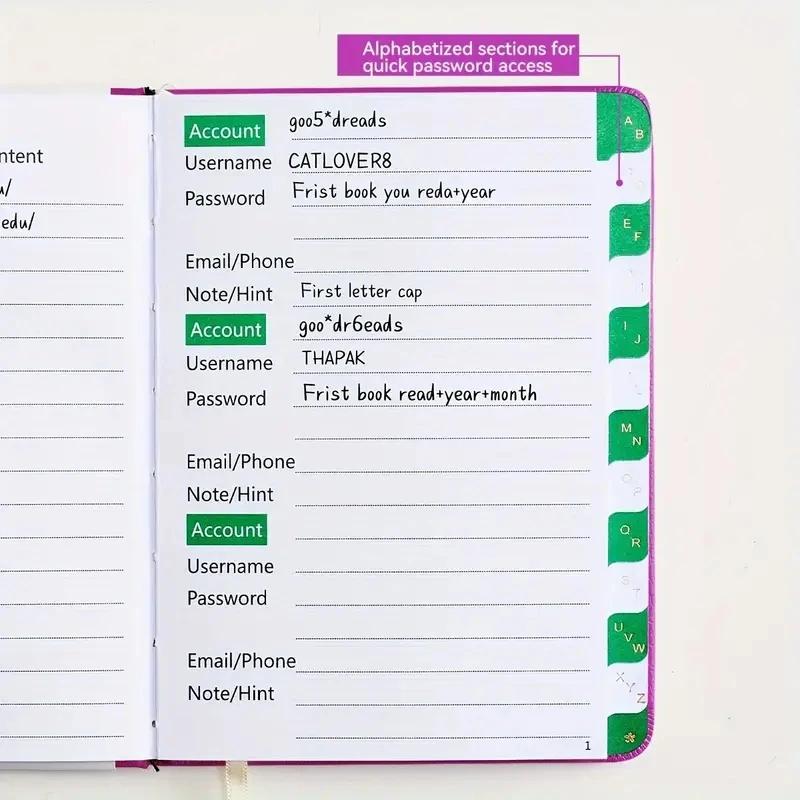 Alphabetized sections for
quick password access
ntent
u/
edu/
Account goo5*dreads
Username CATLOVER8
Password Frist book you reda+year
Email/Phone
Note/Hint First letter cap
Account goo*dr6eads
Username THAPAK
Password Frist book read+year+month
Email/Phone
Note/Hint
Account
Username
Password
Email/Phone
Note/Hint
1
A
B
E
F
I
J
M
N
O
P
Q
R
S
T
U
V
W
X
Y
Z
*